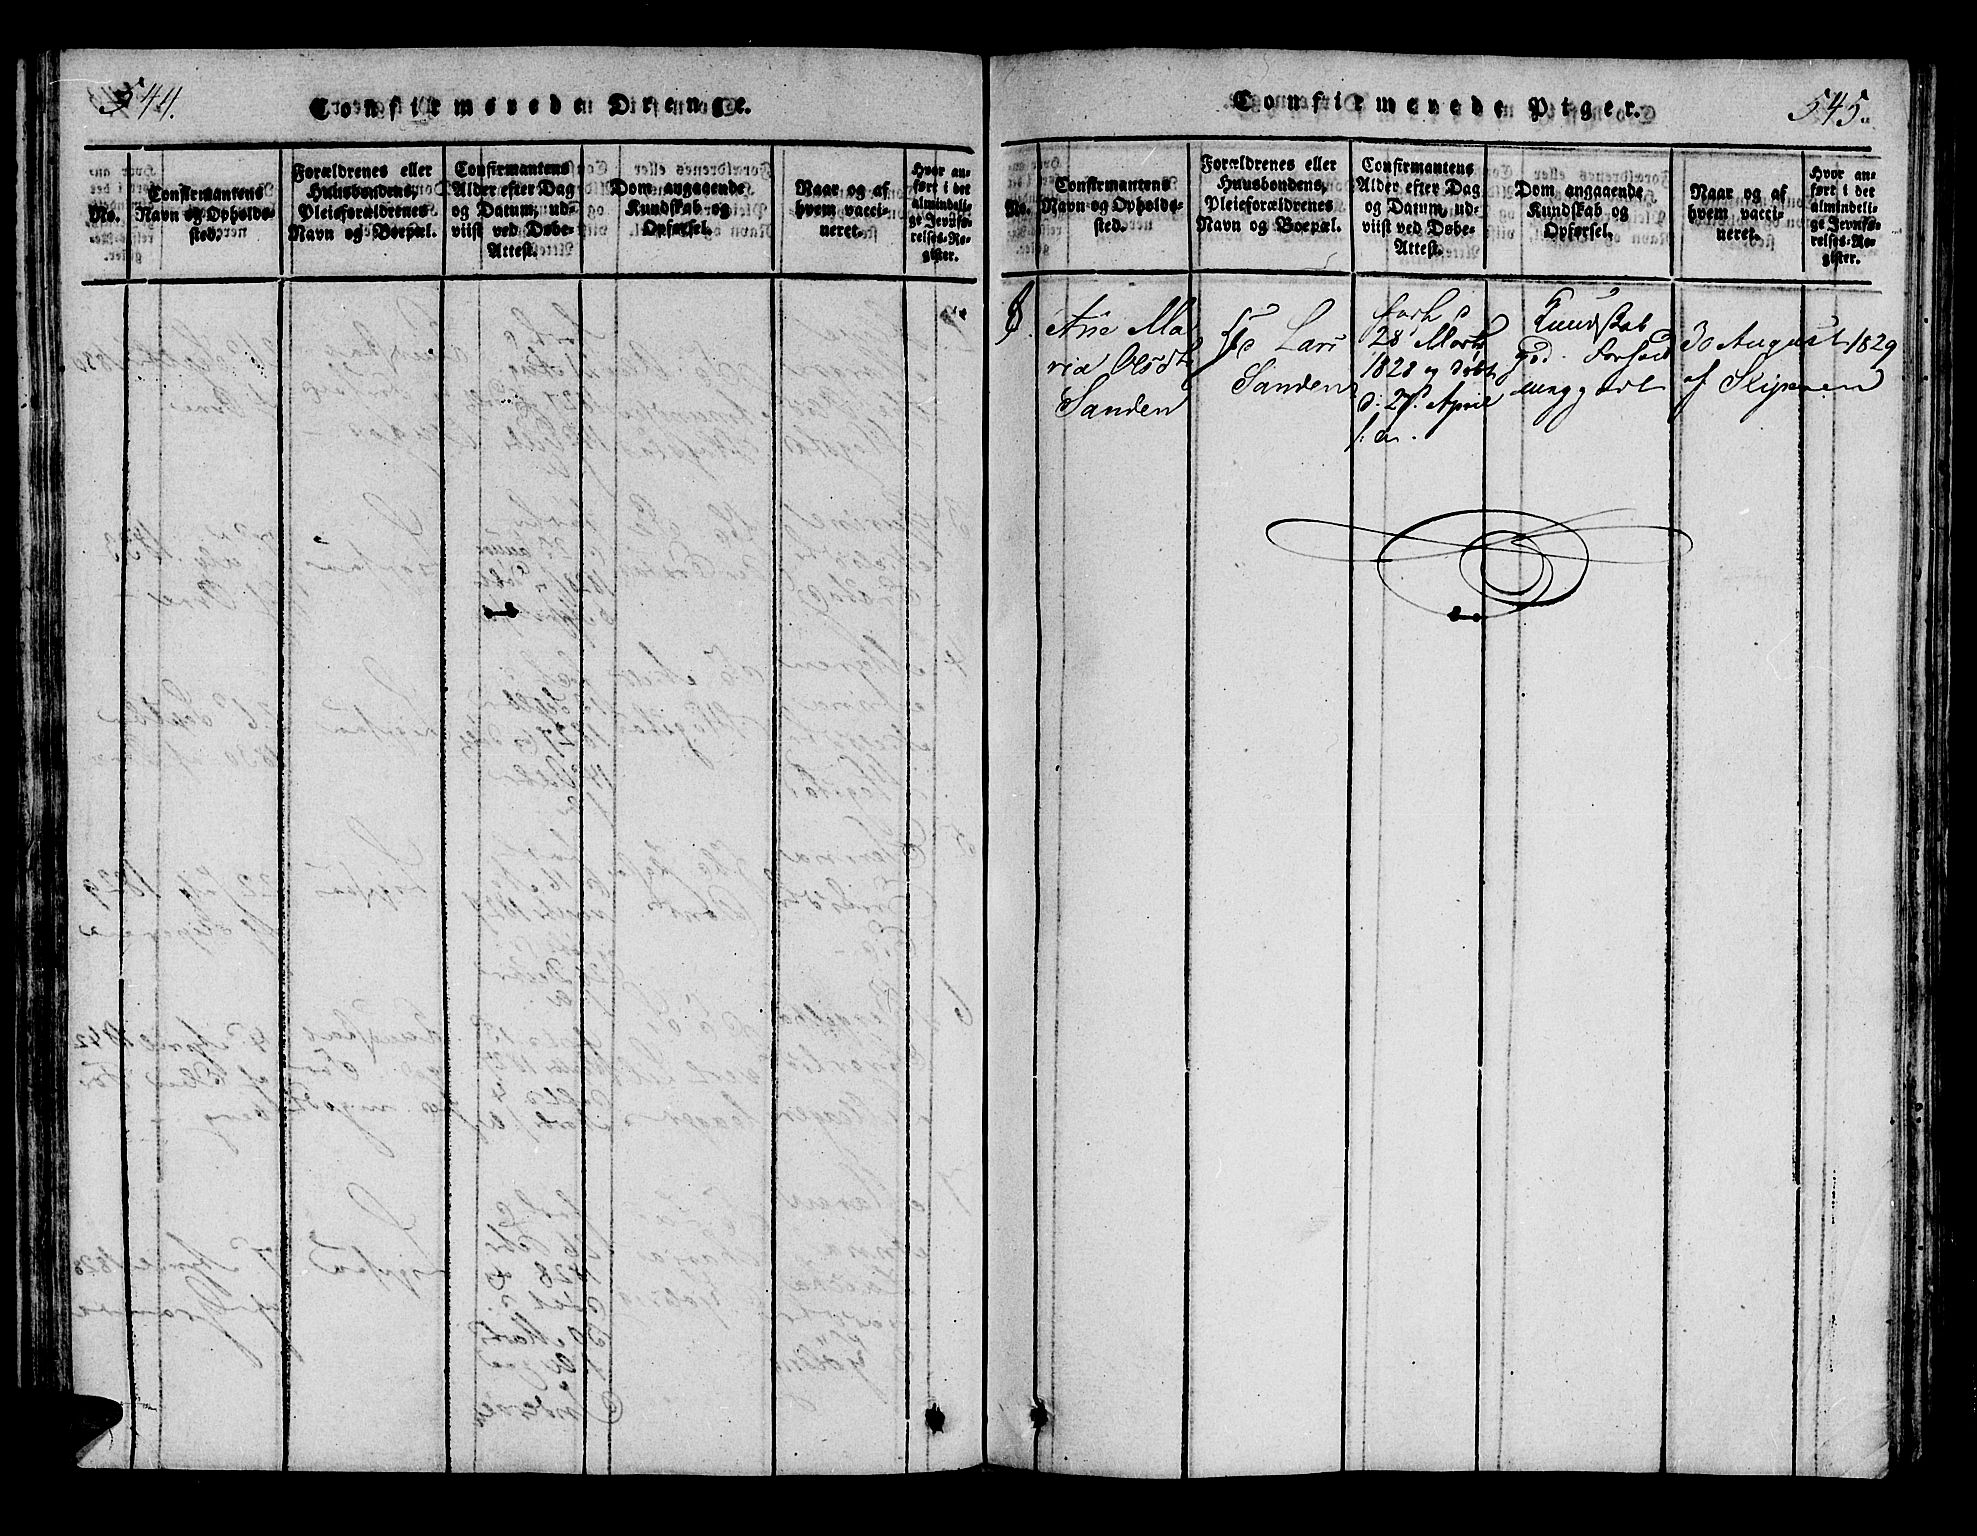 544.
Confirmerede Drenge.
No.
Confirmantens
Navn og Opholds-
sted.
Forældrenes eller
Huusbondens,
Pleieforældrenes
Navn og Boepæl.
Confirmantens
Alder efter Dag
og Datum, ud-
viist ved Døbe-
Attest.
Dom angaaende
Kundskab og
Opførsel.
Naar og af
hvem vacci-
neret.
Hvor an-
ført i det
almindeli-
ge Jevnfø-
relses-Re-
gister.
545.
Confirmerede Piger.
No.
Confirmantens
Navn og Opholds-
sted.
Forældrenes eller
Huusbondens,
Pleieforældrenes
Navn og Boepæl.
Confirmantens
Alder efter Dag
og Datum, ud-
viist ved Døbe-
Attest.
Dom angaaende
Kundskab og
Opførsel.
Naar og af
hvem vacci-
neret.
Hvor an-
ført i det
almindeli-
ge Jevnfø-
relses-Re-
gister.
8
Ane Ma
ria Olsdt
Sanden
Lars
Sanden
født d
28 Marts
1828 og døbt
d: 27 April
s: a.
Kundskab
god. Forhold
meget godt
30 August 1829
af Skipnen